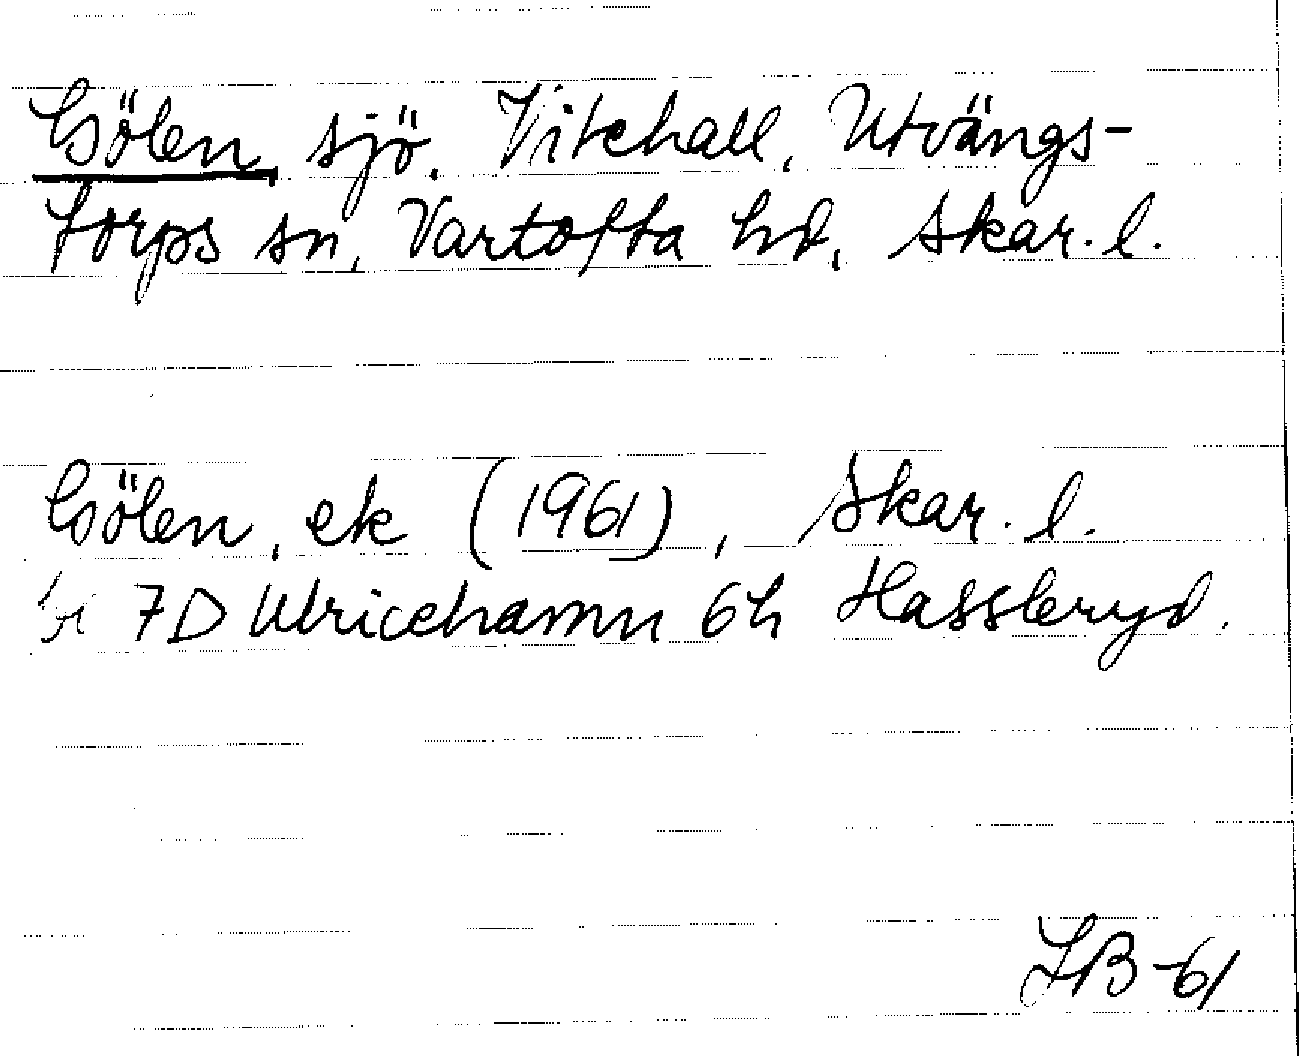 Gölen, sjö, Vitehall, Utvängs-
torps sn, Vartofta hd, Skar. l.
Gölen, ek (1961), Skar. l.
7D Ulricehamn 6h Hassleryd.
LB-61